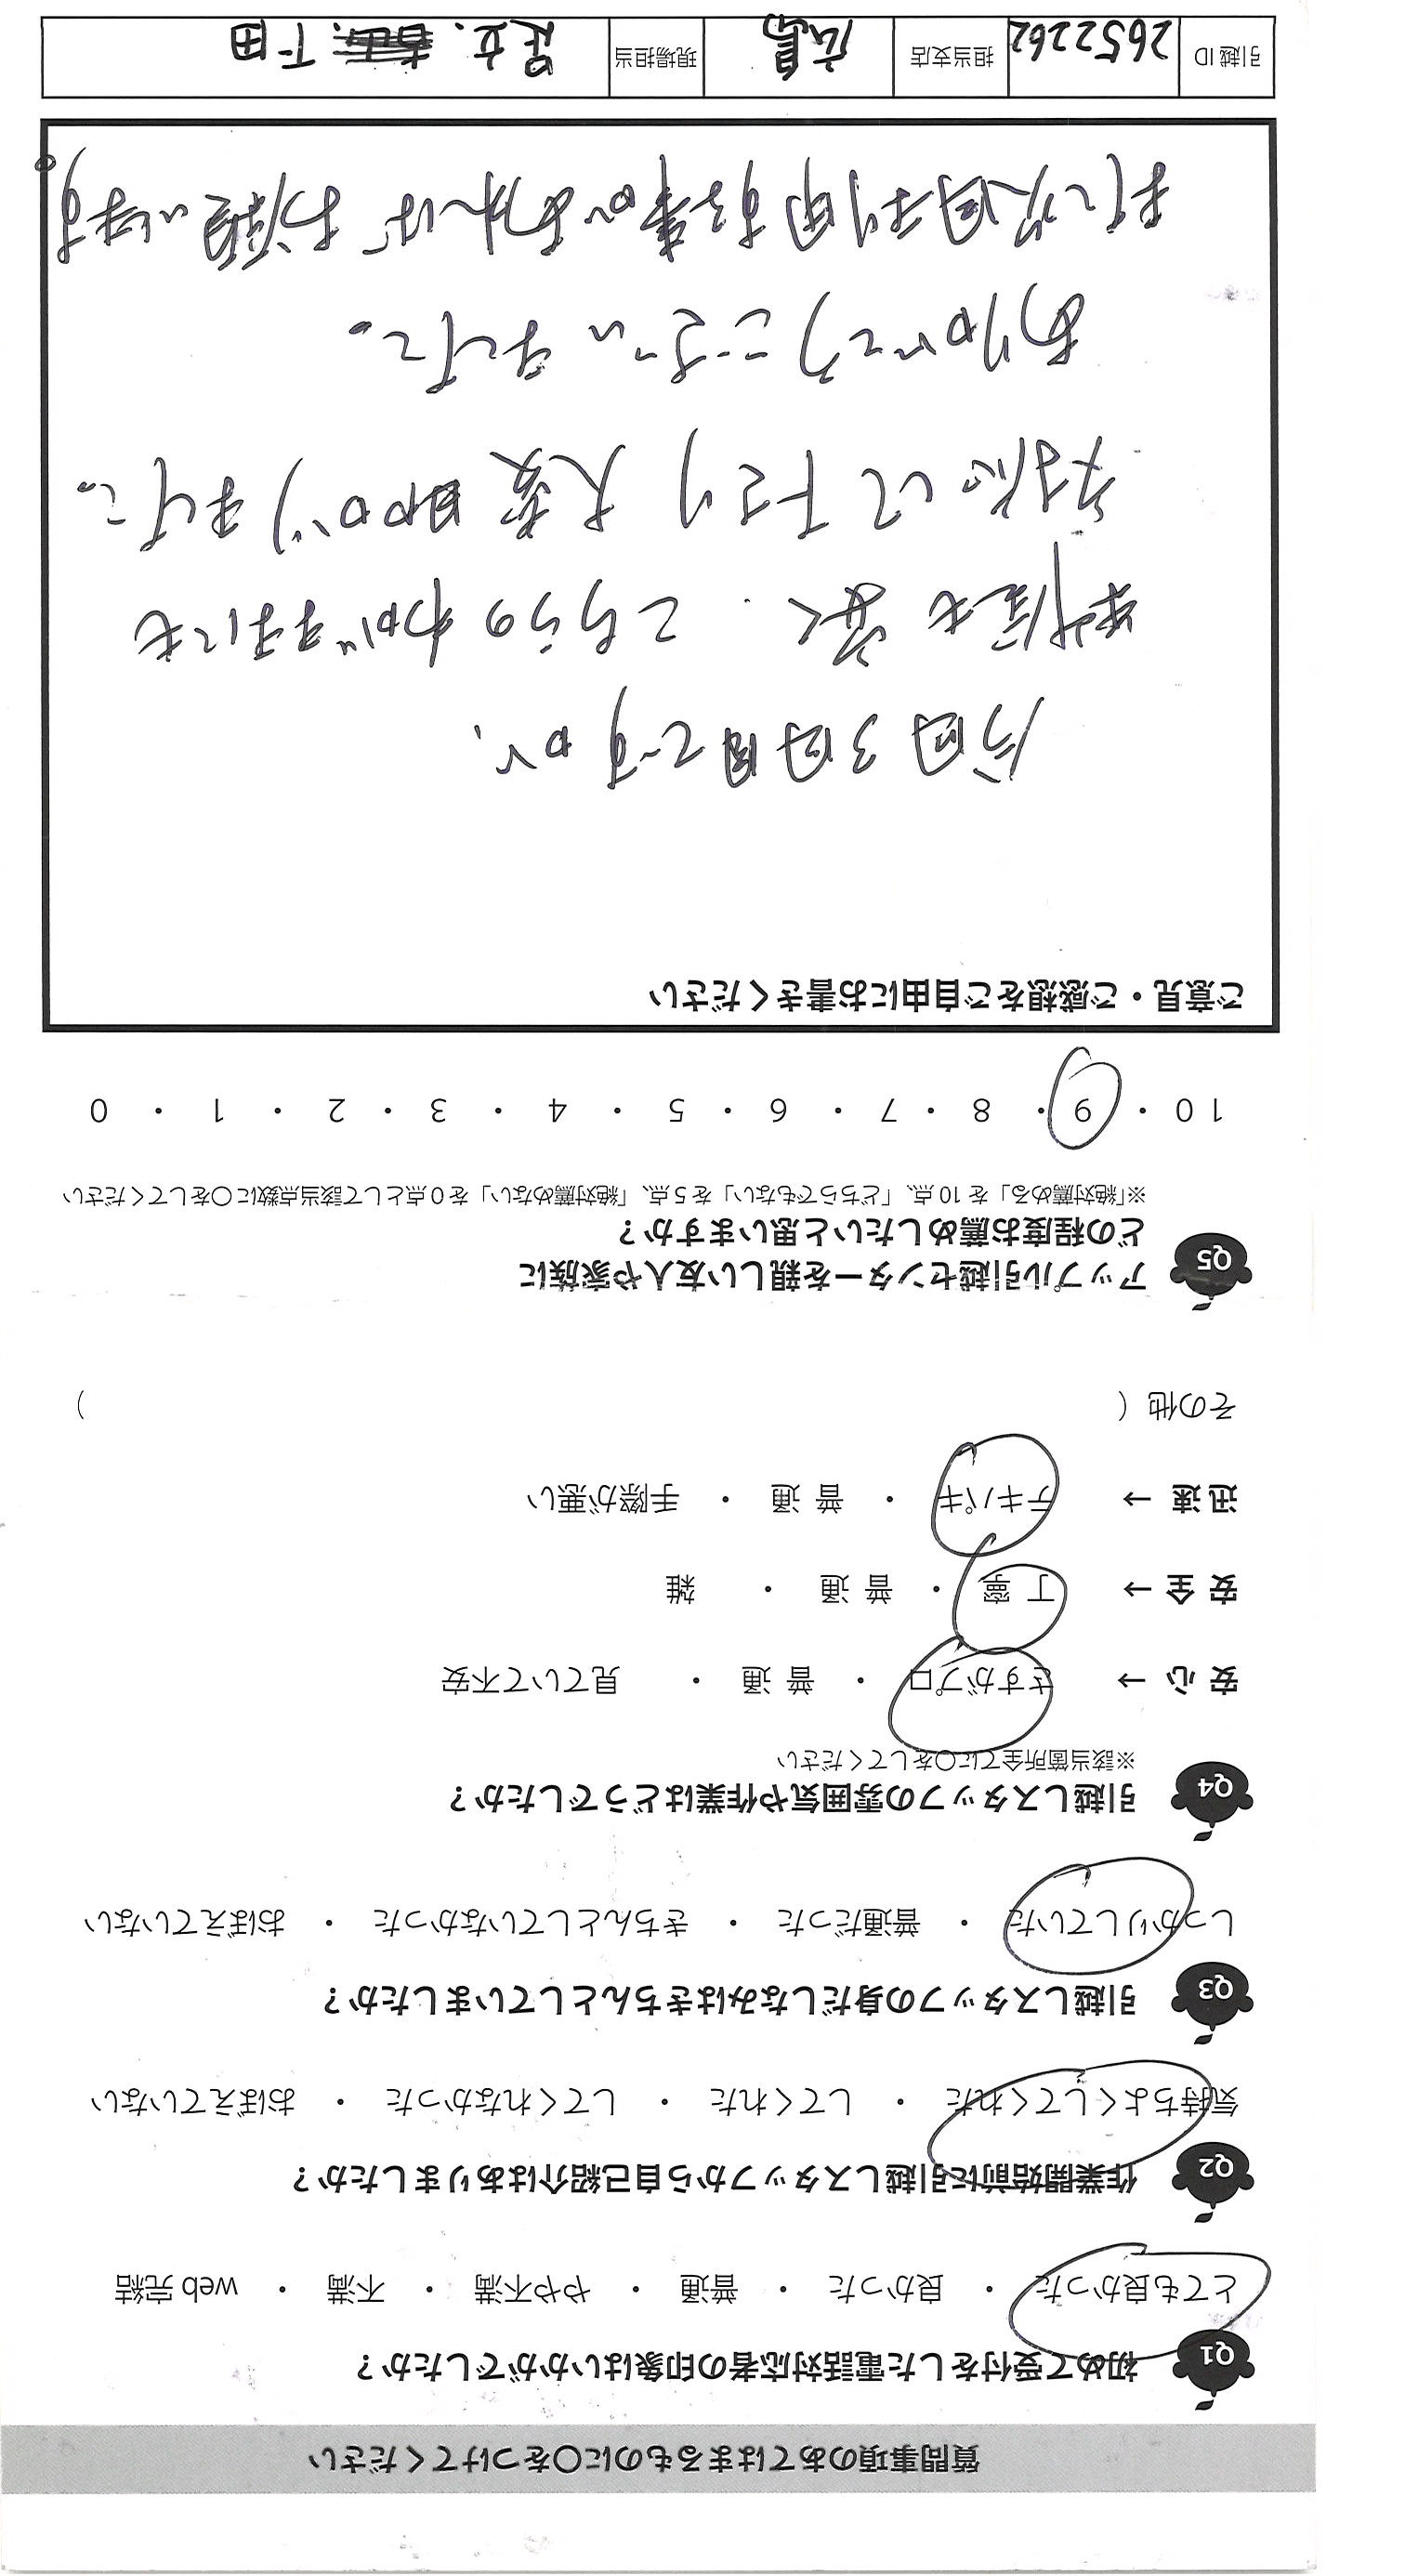 質問事項のあてはまるものに○をつけてください
Q1 初めて受付をした電話対応者の印象はいかがでしたか？
とても良かった ・ 良かった ・ 普通 ・ やや不満 ・ 不満 ・ web 完結
Q2 作業開始前に引越しスタッフから自己紹介はありましたか？
気持ちよくしてくれた ・ してくれた ・ してくれなかった ・ おぼえていない
Q3 引越しスタッフの身だしなみはきちんとしていましたか？
しっかりしていた ・ 普通だった ・ きちんとしていなかった ・ おぼえていない
Q4 引越しスタッフの雰囲気や作業はどうでしたか？
※該当箇所全てに○をしてください
安 心 → さすがプロ ・ 普 通 ・ 見ていて不安
安 全 → 丁 寧 ・ 普 通 ・ 雑
迅 速 → テキパキ ・ 普 通 ・ 手際が悪い
その他（ ）
Q5 アップル引越センターを親しい友人や家族に
どの程度お薦めしたいと思いますか？
※「絶対薦める」を 10 点、「どちらでもない」を 5 点、「絶対薦めない」を 0 点として該当点数に○をしてください
10 ・ 9 ・ 8 ・ 7 ・ 6 ・ 5 ・ 4 ・ 3 ・ 2 ・ 1 ・ 0
ご意見・ご感想をご自由にお書きください
今回3回目ですが、
も 安く、こちらのわがままにも
して下さり大変助かりました。
ありがとうございました。
また次回利用する事があればお願いします。
引越 ID 2652262 担当支店 広島 現場担当 足立、下田